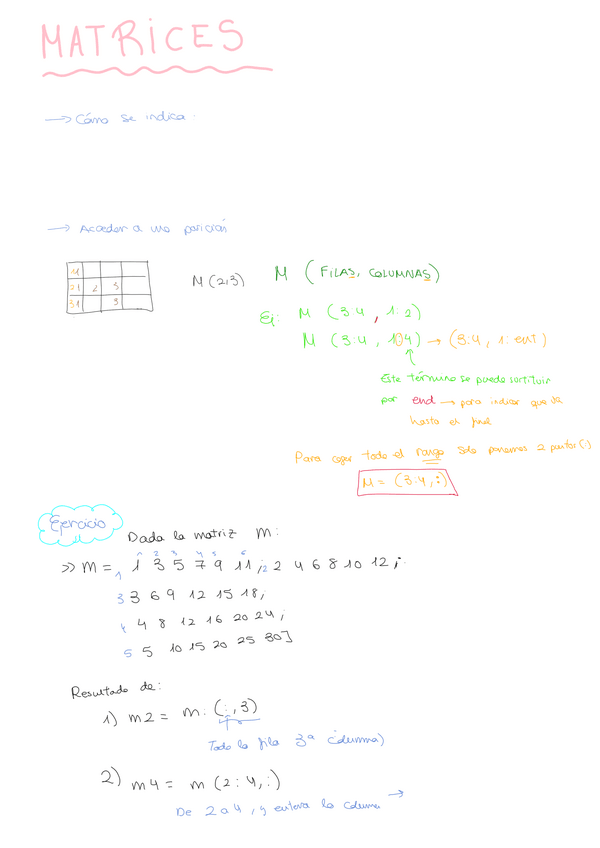 MATRICES
→ Cómo se indica.
→ Acceder a una posición
11
21 2 5
31 9
M (2,3)
M ( FILAS, COLUMNAS)
Ej: M (3:4 , 1:2)
M (3:4 , 104) → (3:4 , 1: ent)
Este término se puede sustituir
por end → para indicar que va
hasta el final
Para coger todo el rango solo ponemos 2 puntos (:)
M = (3:4,:)
Ejercicio
Dada la matriz M:
1 2 3 4 5 6
>> M = 1 1 3 5 7 9 11 ; 2 2 4 6 8 10 12 ;
3 3 6 9 12 15 18;
4 4 8 12 16 20 24;
5 5 10 15 20 25 30]
Resultado de:
1) m2 = m: (:,3)
Toda la fila 3ª columna)
2) m4 = m (2:4,:)
De 2 a 4 , y entera la columna →